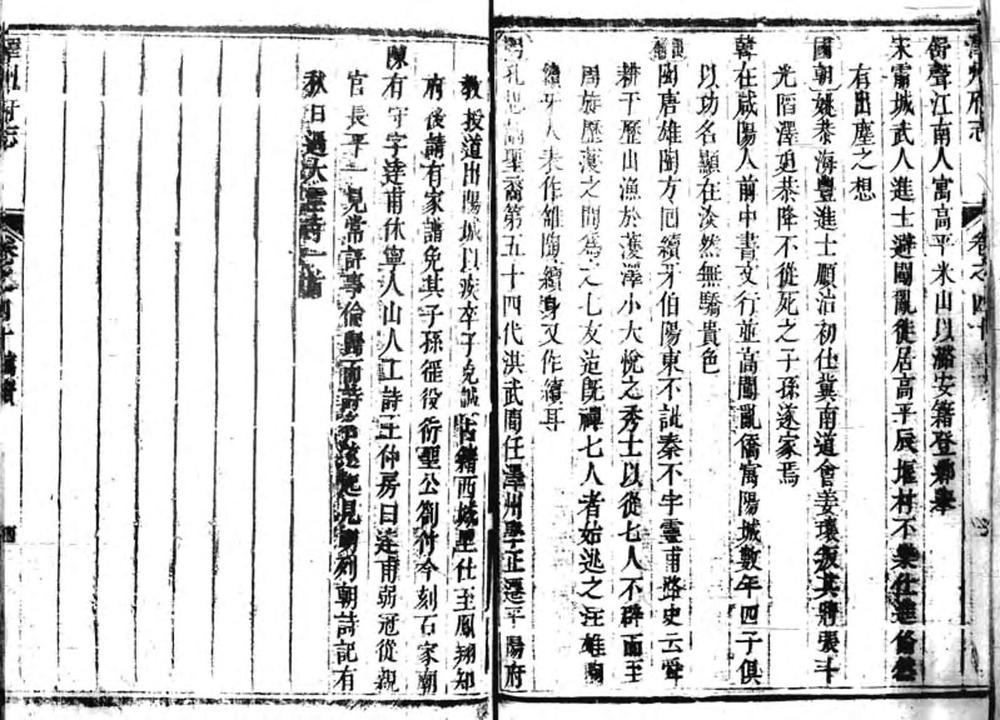 澤州府志
卷之四十
舒聲江南人寓高平米山以潞安籍登鄉舉
宋霱城武人進士避闖亂徙居高平辰堰村不樂仕進翛然
有出塵之想
國朝姚恭海豐進士順治初仕冀南道會姜瓖叛其將張斗
光陷澤吏恭降不從死之子孫遂家焉
韓在咸陽人前中書文行並高闖亂僑寓陽城數年四子俱
以功名顯在淡然無驕貴色
雄陶方回續牙伯陽東不訾秦不宇靈甫路史云舜
耕于歷山漁於濩澤小大悅之秀士以從七人不辭而至
周旋歷濩之間為之七友造既禪七人者始逃之注雄陶
續牙人表作雒陶續身又作續耳
聖裔第五十四代洪武間任澤州學正遷平陽府
教授道出陽城以疾卒子克誠占籍西城聖仕至鳳翔知
府後請有家譜免其子孫徭役衍聖公劄付今刻石家廟
陳有守字達甫休寧人山人工詩王仲房曰達甫弱冠從親
官長平一見常評事倫與而詩遂起見列朝詩記有
秋日過大雲詩一首
澤州府志
卷之四十